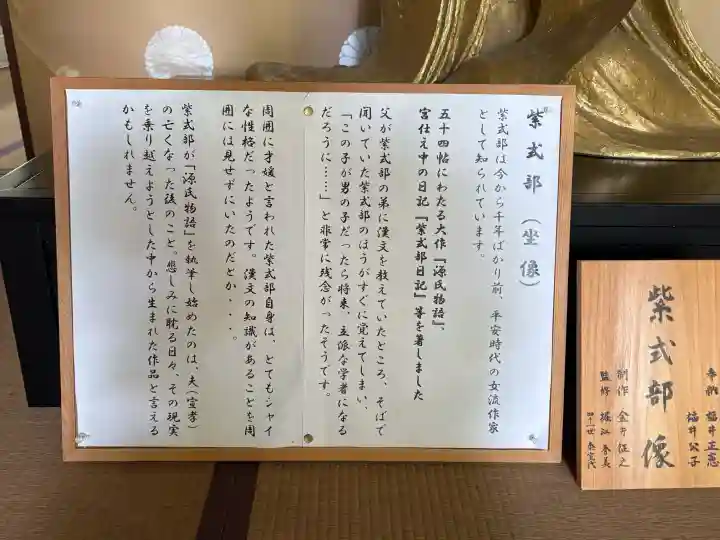 紫式部（坐像）
紫式部は今から千年ばかり前、平安時代の女流作家
として知られています。
五十四帖にわたる大作『源氏物語』、
宮仕え中の日記『紫式部日記』等を著しました
父が紫式部の弟に漢文を教えていたところ、そばで
聞いていた紫式部のほうがすぐに覚えてしまい、
「この子が男の子だったら将来、立派な学者になる
だろうに……」と非常に残念がったそうです。
周囲に才媛と言われた紫式部自身は、とてもシャイ
な性格だったようです。漢文の知識があることを周
囲には見せずにいたのだとか・・・。
紫式部が『源氏物語』を執筆し始めたのは、夫（宣孝）
の亡くなった後のこと。悲しみに耽る日々、その現実
を乗り越えようとした中から生まれた作品と言える
かもしれません。
奉納 福井正憲
福井公子
紫式部像
制作 金井征之
監修